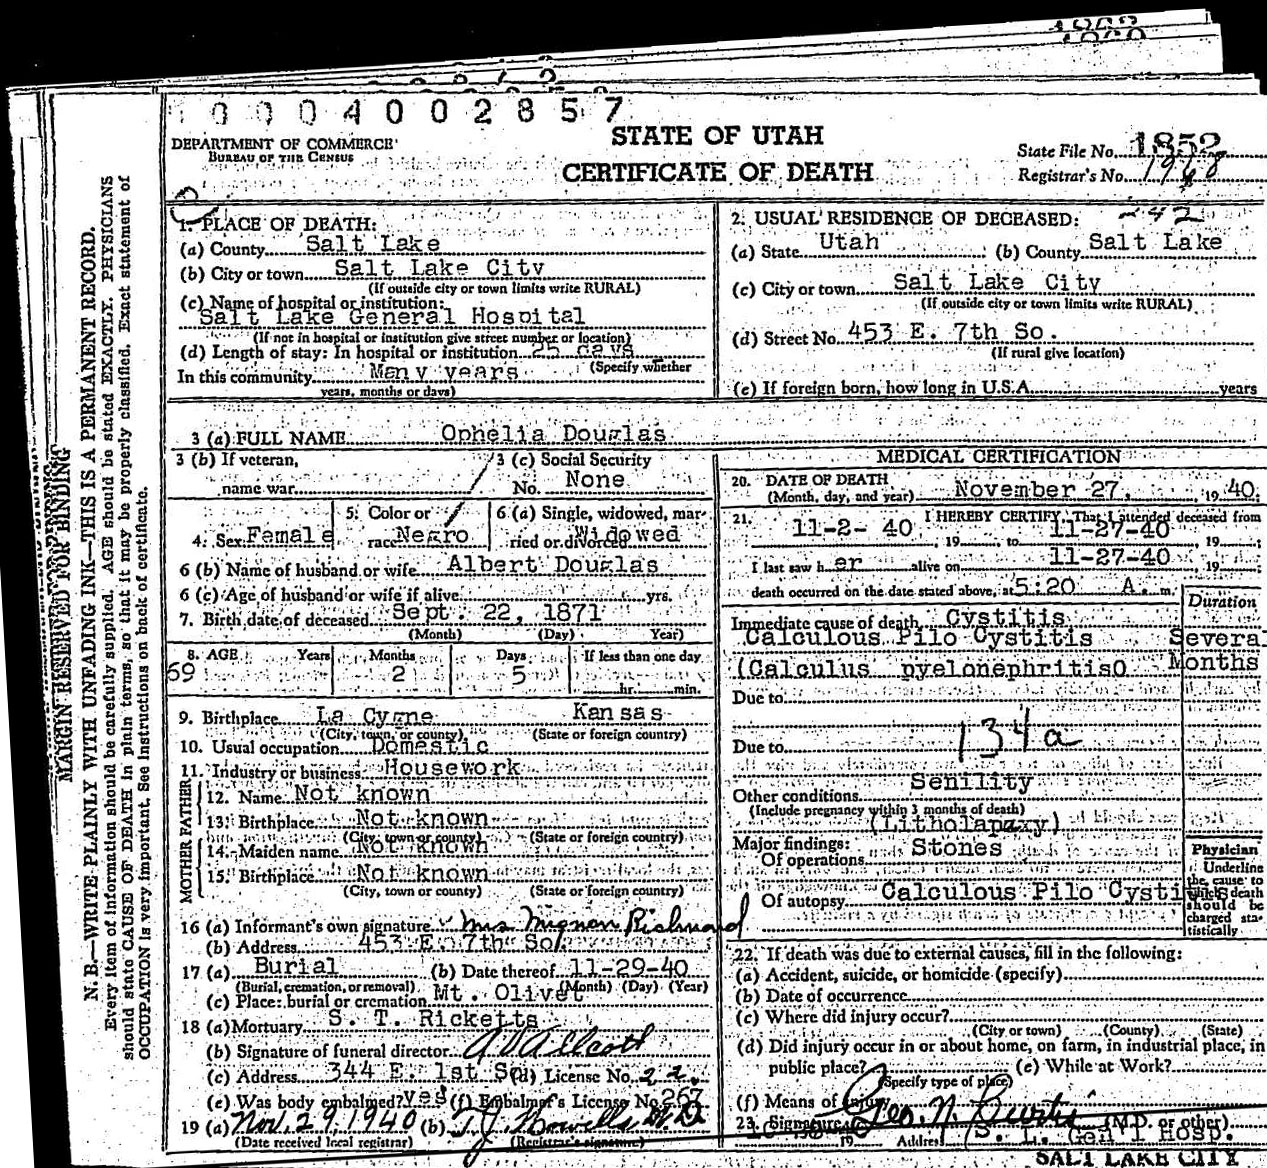 0 0 0 4 0 0 2 8 5 7
DEPARTMENT OF COMMERCE
BUREAU OF THE CENSUS
STATE OF UTAH
CERTIFICATE OF DEATH
State File No. 1852
Registrar's No. 1968
1. PLACE OF DEATH:
(a) County Salt Lake
(b) City or town Salt Lake City
(If outside city or town limits write RURAL)
(c) Name of hospital or institution:
Salt Lake General Hospital
(If not in hospital or institution give street number or location)
(d) Length of stay: In hospital or institution 25 days
(Specify whether
In this community Many years
years, months or days)
2. USUAL RESIDENCE OF DECEASED: -42
(a) State Utah (b) County Salt Lake
(c) City or town Salt Lake City
(If outside city or town limits write RURAL)
(d) Street No. 453 E. 7th So.
(If rural give location)
(e) If foreign born, how long in U.S.A. years
3 (a) FULL NAME Ophelia Douglas
3 (b) If veteran,
name war
3 (c) Social Security
No. None
4. Sex Female
5. Color or
race Negro
6 (a) Single, widowed, mar-
ried or divorced Widowed
6 (b) Name of husband or wife Albert Douglas
6 (c) Age of husband or wife if alive yrs.
7. Birth date of deceased Sept. 22, 1871
(Month) (Day) Year)
8. AGE Years Months Days If less than one day
69 2 5 hr. min.
9. Birthplace La Cygne Kansas
(City, town, or county) (State or foreign country)
10. Usual occupation Domestic
11. Industry or business Housework
FATHER
12. Name Not known
13. Birthplace Not known
(City, town or county) (State or foreign country)
MOTHER
14. Maiden name Not known
15. Birthplace Not known
(City, town or county) (State or foreign country)
16 (a) Informant's own signature Mrs Mignon Richmond
(b) Address 453 E. 7th So.
17 (a) Burial (b) Date thereof 11-29-40
(Burial, cremation, or removal) (Month) (Day) (Year)
(c) Place: burial or cremation Mt. Olivet
18 (a) Mortuary S. T. Ricketts
(b) Signature of funeral director
(c) Address 344 E. 1st So. (d) License No. 22.
(e) Was body embalmed? yes (f) Embalmer's License No. 267
19 (a) Nov. 29, 1940 (b) T. J. Howells M.D
(Date received local registrar) (Registrar's signature)
MEDICAL CERTIFICATION
20. DATE OF DEATH
(Month, day, and year) November 27, 19 40.
21. I HEREBY CERTIFY, That I attended deceased from
11-2- 40 , 19 to 11-27-40 , 19 ;
I last saw h er alive on 11-27-40 , 19 ;
death occurred on the date stated above, at 5:20 A. m.
Duration
Immediate cause of death Cystitis
Calculous Pilo Cystitis Several
(Calculus pyelonephritis0 Months
Due to
Due to 134a
Other conditions Senility
(Include pregnancy within 3 months of death)
(Litholapaxy)
Major findings:
Of operations Stones
Of autopsy Calculous Pilo Cystitis
Physician
Underline
the cause to
which death
should be
charged sta-
tistically
22. If death was due to external causes, fill in the following:
(a) Accident, suicide, or homicide (specify)
(b) Date of occurrence
(c) Where did injury occur?
(City or town) (County) (State)
(d) Did injury occur in or about home, on farm, in industrial place, in
public place? (e) While at Work?
(Specify type of place)
(f) Means of injury
23. Signature Geo. N. Curtis (M.D. or other)
19 Address S. L. Gen'l Hosp.
SALT LAKE CITY
MARGIN RESERVED FOR BINDING
N. B.—WRITE PLAINLY WITH UNFADING INK—THIS IS A PERMANENT RECORD.
Every item of information should be carefully supplied. AGE should be stated EXACTLY. PHYSICIANS
should state CAUSE OF DEATH in plain terms, so that it may be properly classified. Exact statement of
OCCUPATION is very important. See instructions on back of certificate.